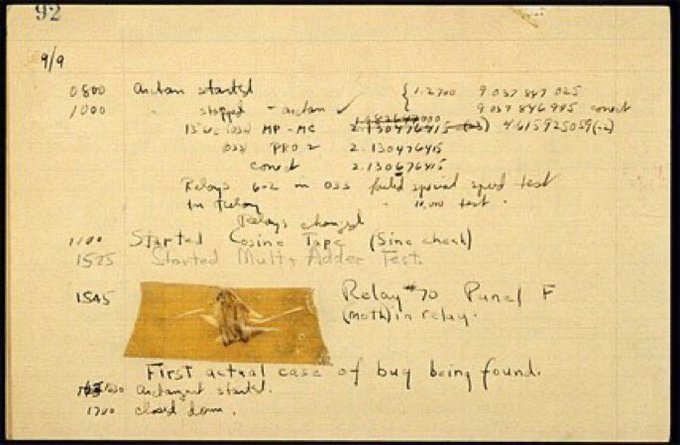 92
9/9
0800 Antan started
1000 " stopped - antan ✓ { 1.2700 9.037 847 025
9.037 846 995 correct
13"uc (032) MP - MC 2.130476415 (-3) 4.615925059 (-2)
(033) PRO 2 2.130476415
correct 2.130676415
Relays 6-2 in 033 failed special speed test
in relay " 10,000 test .
Relays changed
1100 Started Cosine Tape (Sine check)
1525 Started Mult + Adder Test.
1545 Relay #70 Panel F
(moth) in relay.
First actual case of bug being found.
1630 antangent started.
1700 closed down.